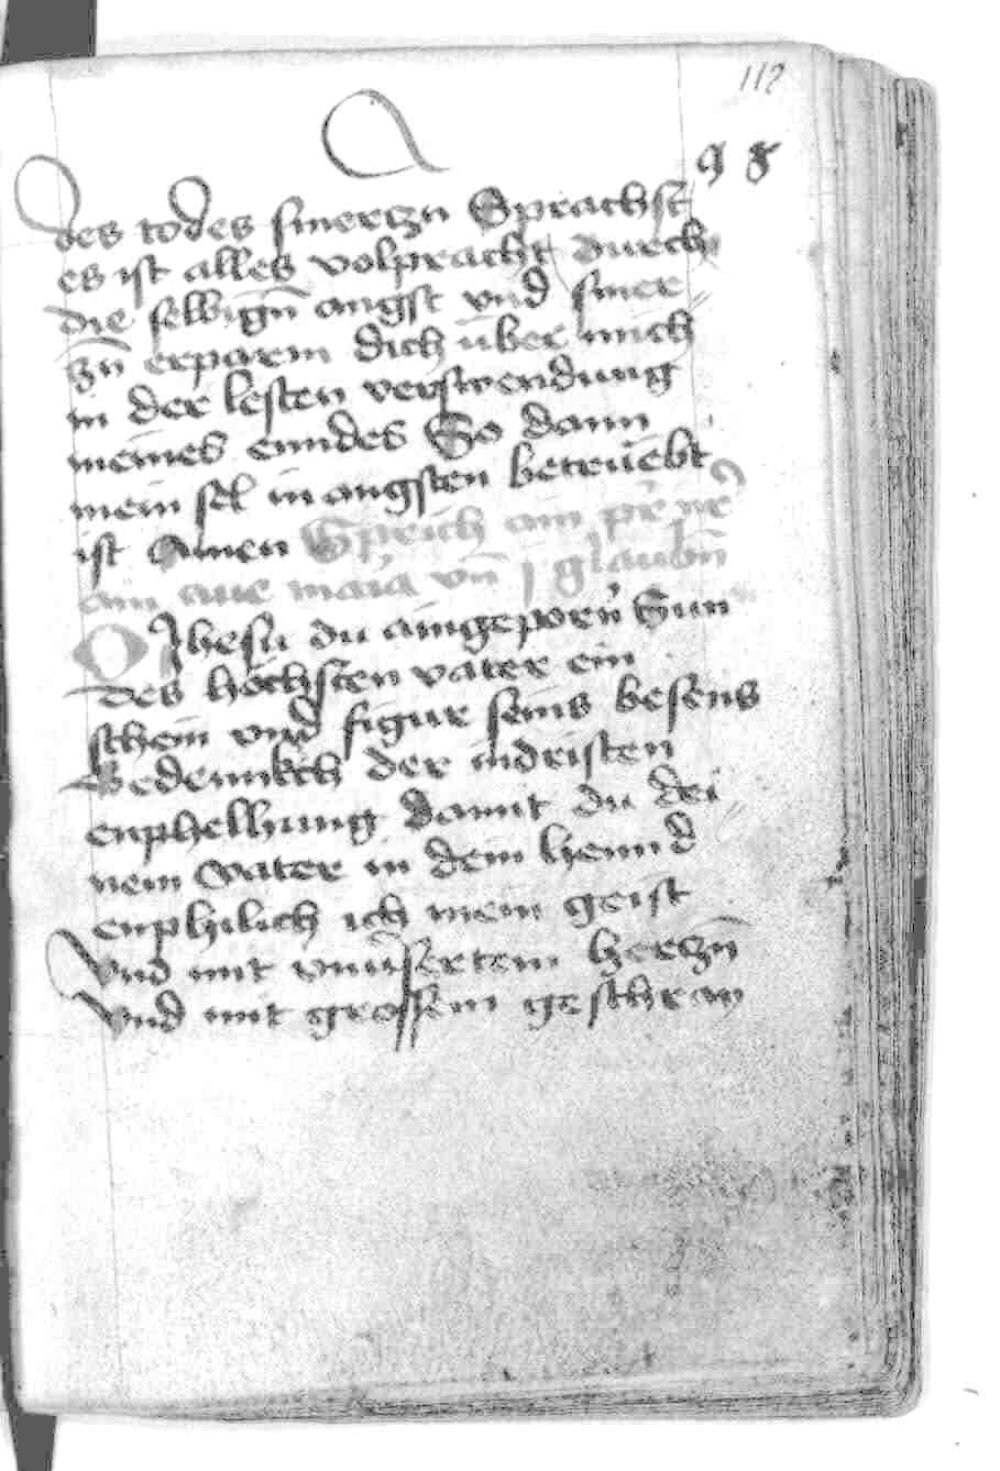 112
98
des todes smerczn Sprachst
es ist alles volpracht durch
die selbign̄ angst vnd smer
zn̄ erparm dich über mich
in der lesten verswendung
meines enndes So dann
mein sel in angsten betrüebt
ist Amen Sprich ain pr̄ nr̄
ain aue maria vn̄ j glaubn̄
O Jhesu du aingeporn̄ Sun
des höchsten vater ein
schein vnd figur seins besens
Bedennkch der indristen
enphelhung damit du dei
nem vater in dein hennd
enphilich ich mein geist
vnd mit herczn̄
vnd mit grossem geschray